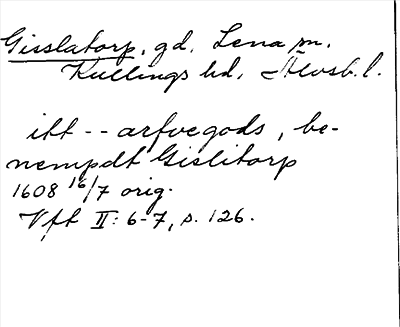 Gisslatorp, gd, Lena sn,
Kullings hd, Älvsb. l.
itt -- arfvegods, be-
nempdt Gislitorp
1608 16/7 orig.
Vft II: 6-7, s. 126.